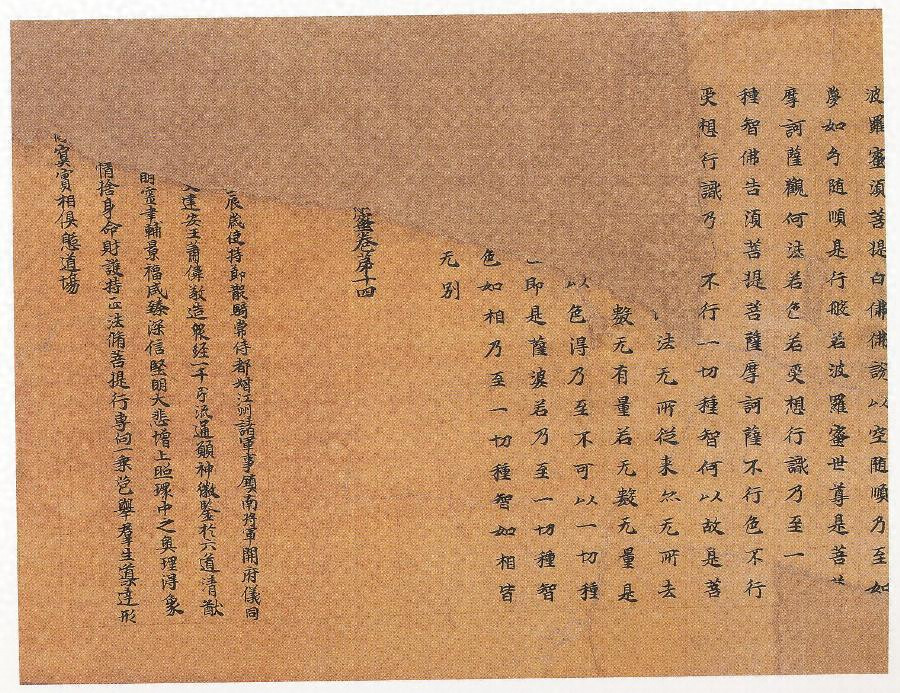 波羅蜜須菩提白佛佛說以空随順乃至如
夢如幻随順是行般若波羅蜜世尊是菩
摩訶薩觀何法若色若受想行識乃至一
種智佛告須菩提菩薩摩訶薩不行色不行
受想行識乃不行一切種智何以故是菩
法无所從来亦无所去
數无有量若无數无量是
以色得乃至不可以一切種
即是薩婆若乃至一切種智
色如相乃至一切種智如相皆
无別
蜜卷第十四
辰歲使持節散騎常侍都督江州諸軍事鎮南将軍開府儀同
建安王蕭偉敬造衆經一千弓流通願神徽鑒於六道清猷
明寘幸輔景福咸臻深信堅明大悲增上照環中之奧理得象
情捨身命財護持正法脩菩提行專向一乘苞舉羣生導達形
寘實相俱憩道場